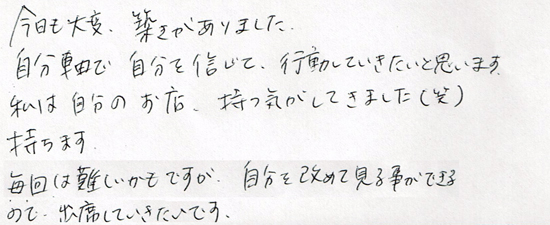 今日も大変、築きがありました。
自分専由で自分を信じて、行動していきたいと思います
私は自分のお店、持つ気がしてきました(笑)
持ちます。
毎回は難しいかもですが、自分を改めて見る事ができる
ので、出席していきたいです。